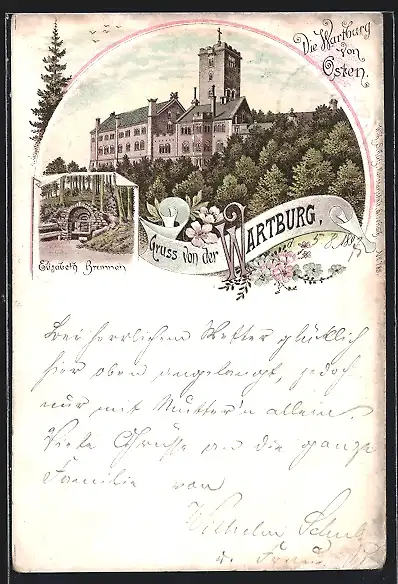 Die Wartburg
von
Osten.
Elisabeth Brunnen
Gruss von der WARTBURG,
Bei herrlichem Wetter glücklich
hier oben angelangt, jedoch
nur mit Mutter'n allein.
Viele Grüsse an die ganze
Familie von
Wilhelm